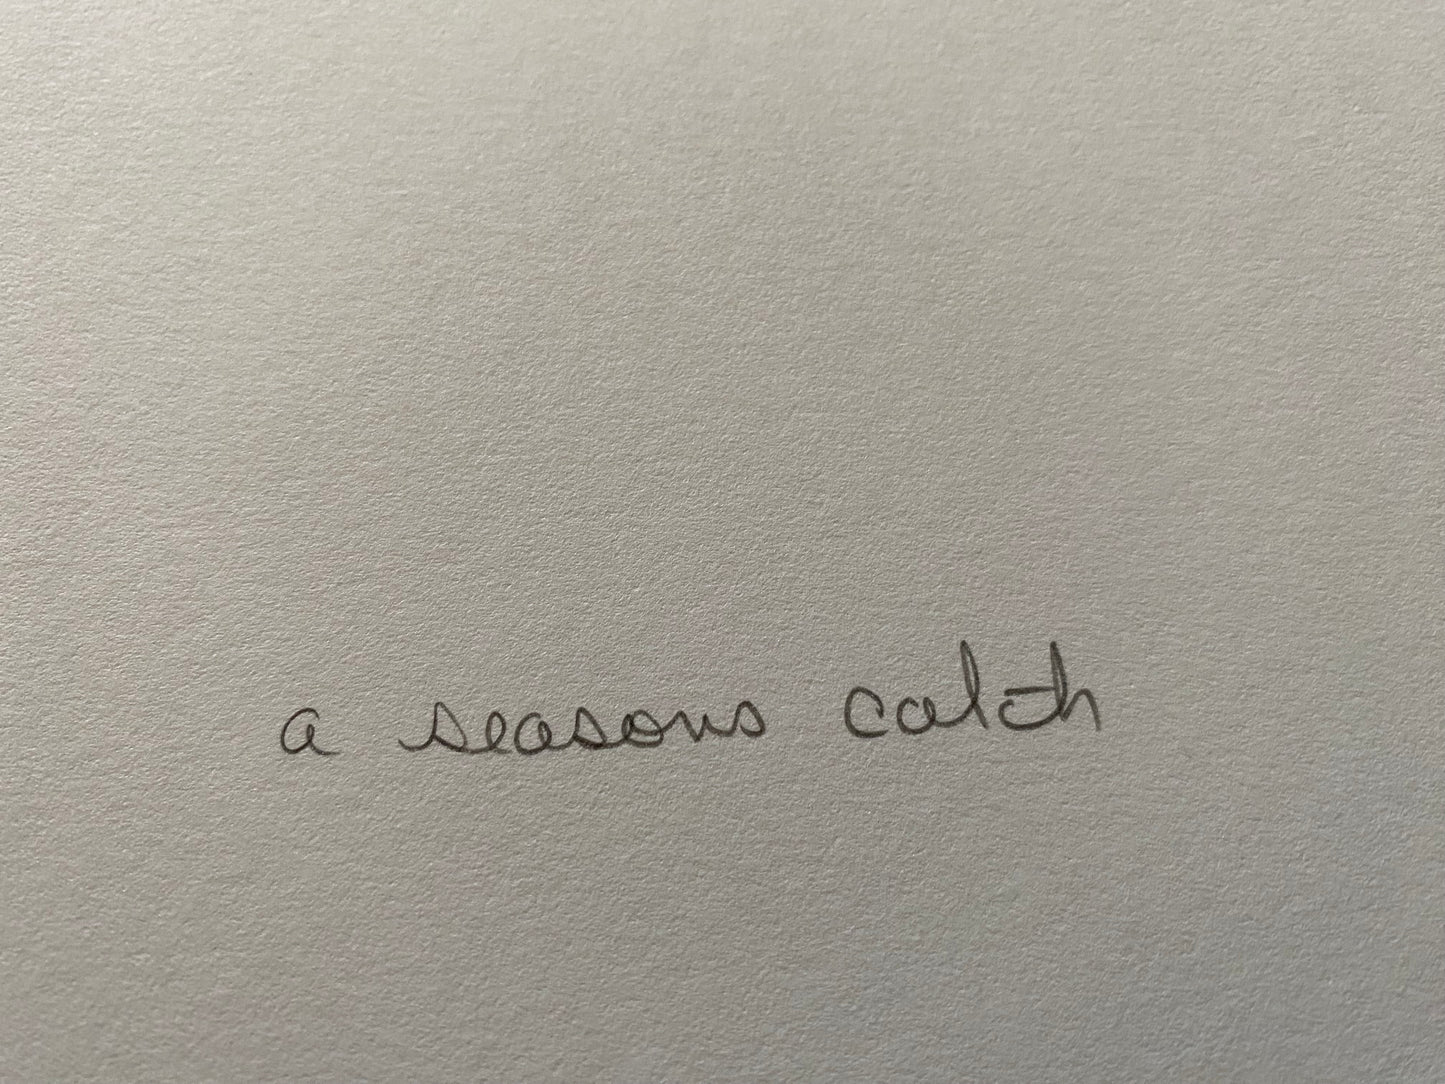 a seasons catch